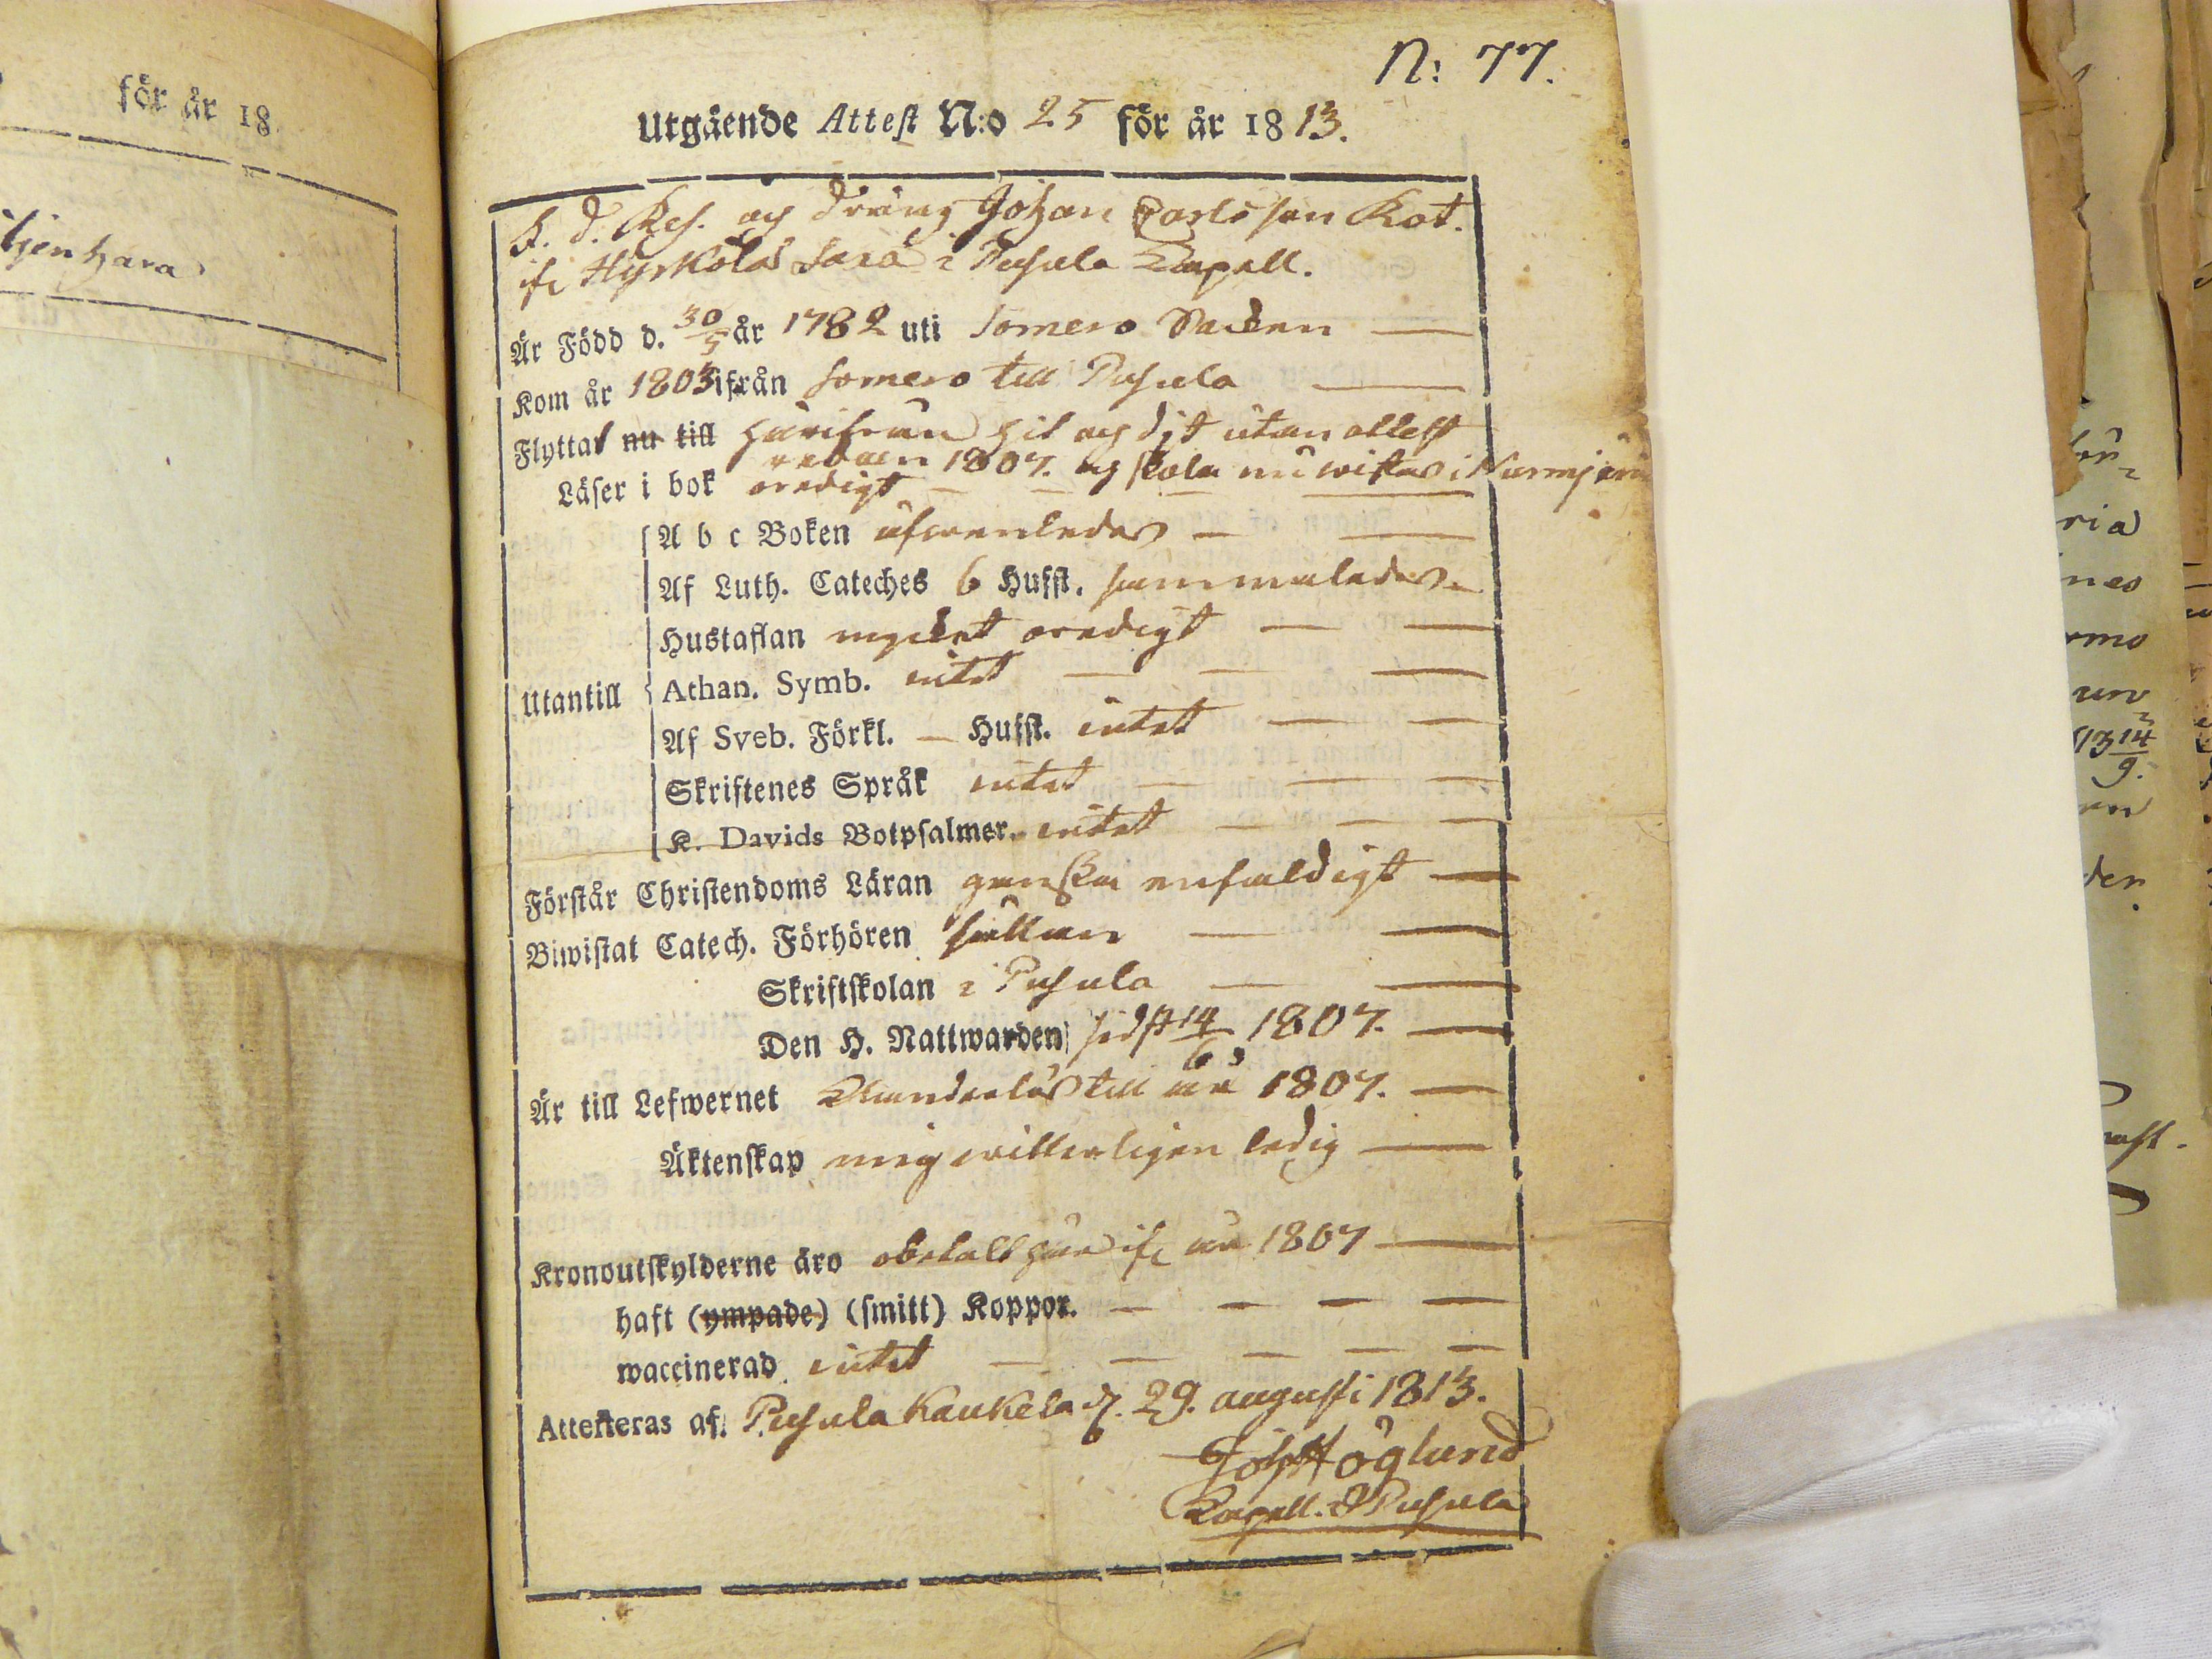 för år 18
N: 77.
Utgående Attest N:o 25 för år 1813.
f. d. och dräng Johan Carlsson Kot.
ifr. Hyrkölä Sara i Pusula Capell.
Är Född d. 30/5 år 1782 uti Somero Socken
Kom år 1803 ifrån Somero till Pusula
Flyttat nu till härifrån hit och dit utan attest
redan 1807. och skola nu wistas i Nurmijärwi
Läser i bok oredigt
A b c Boken äfwenledes
Af Luth. Cateches 6 Hufst. sammaledes
Hustaflan mycket oredigt
Athan. Symb. intet
Utantill
Af Sveb. Förkl. — Hufst. intet
Skriftenes Språk intet
K. Davids Botpsalmer. intet
Förstår Christendoms Läran ganska enfaldigt
Biwistat Catech. Förhören sällan
Skriftskolan i Pusula
Den H. Nattwarden sidst 14/6 1807.
Är till Lefwernet Klanderlös till år 1807.
Äktenskap mig witterligen ledig
Kronoutskylderne äro obetalt här ifr. år 1807
haft (ympade) (smitt) Koppor.
waccinerad intet
Attesteras af. Pusula Kaukela d. 29. augusti 1813.
Joh Höglund
Capell. i Pusula